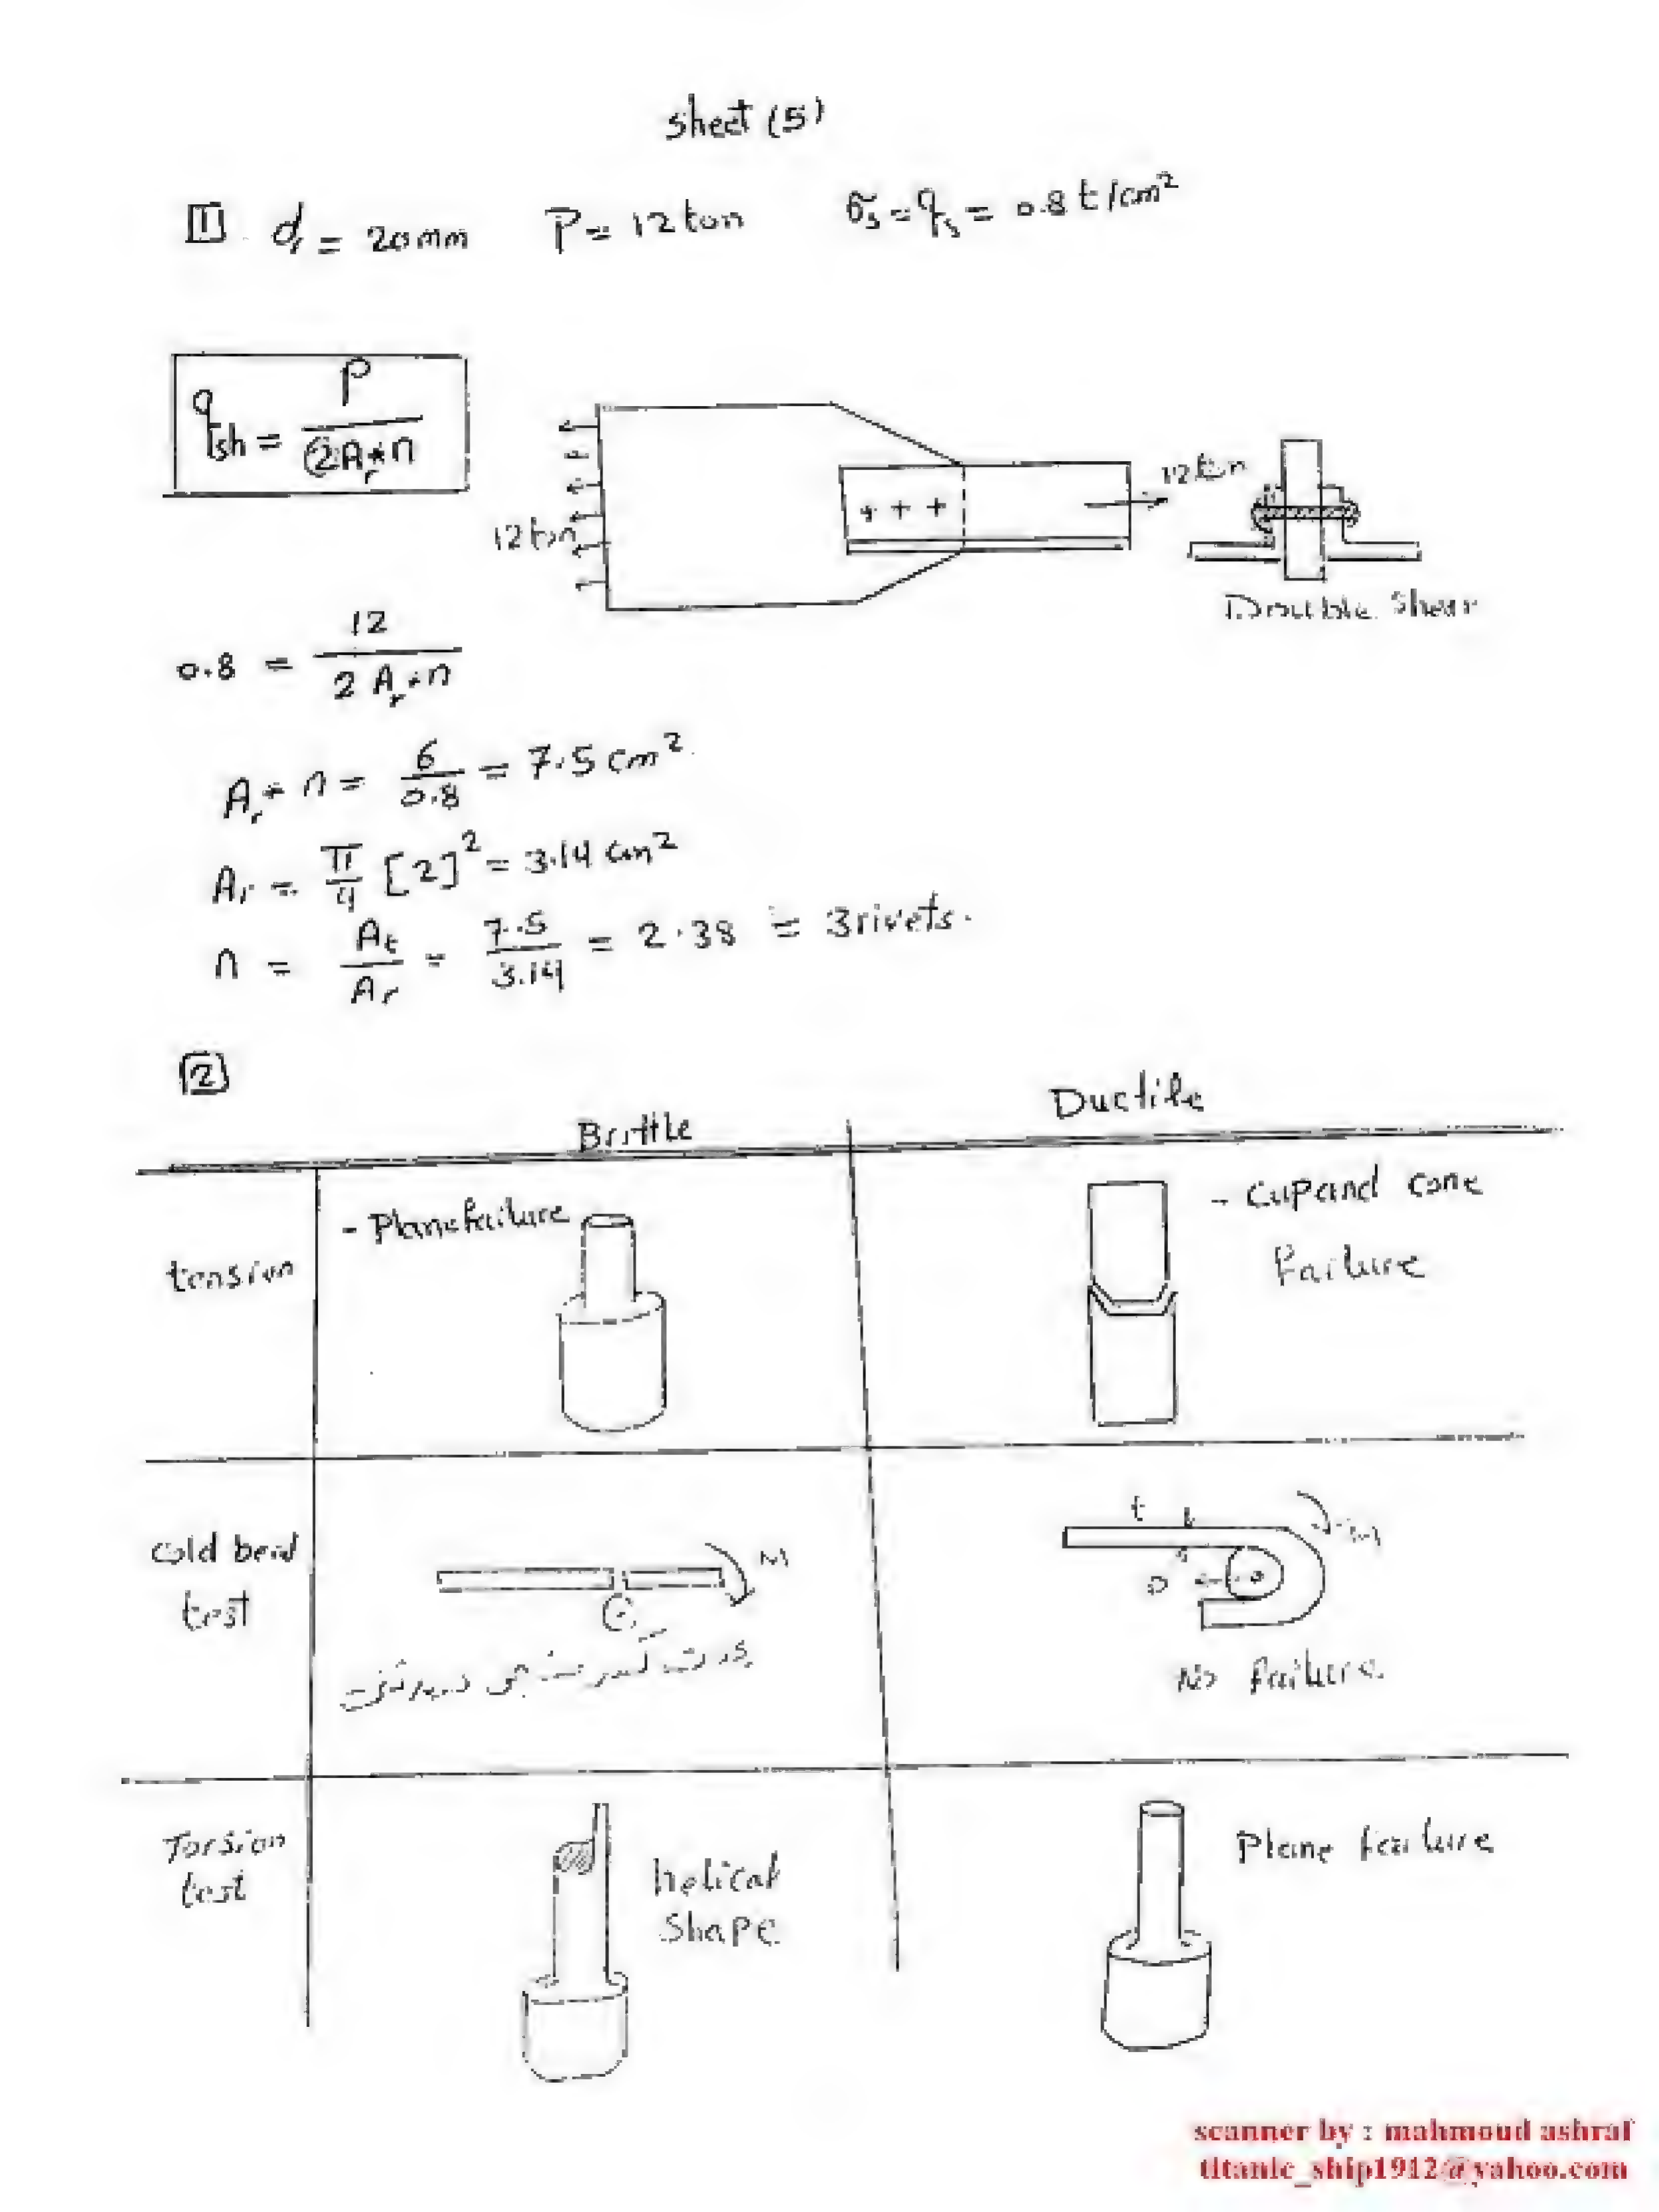 sheet (5)
1 dr = 20mm P = 12 ton σs = qs = 0.8 t/cm²
qsh = P / (2Ar*n)
12 ton
12 ton
Double Shear
0.8 = 12 / (2 Ar*n)
Ar * n = 6/0.8 = 7.5 cm²
Ar = π/4 [2]² = 3.14 cm²
n = At/Ar = 7.5/3.14 = 2.38 = 3 rivets.
2
Brittle Ductile
tension
- Plane failure
- Cup and cone
failure
cold bend
test
M
t M
D
No failure
Torsion
test
helical
shape
Plane failure
scanner by : mahmoud ashraf
titanic_ship1912@yahoo.com